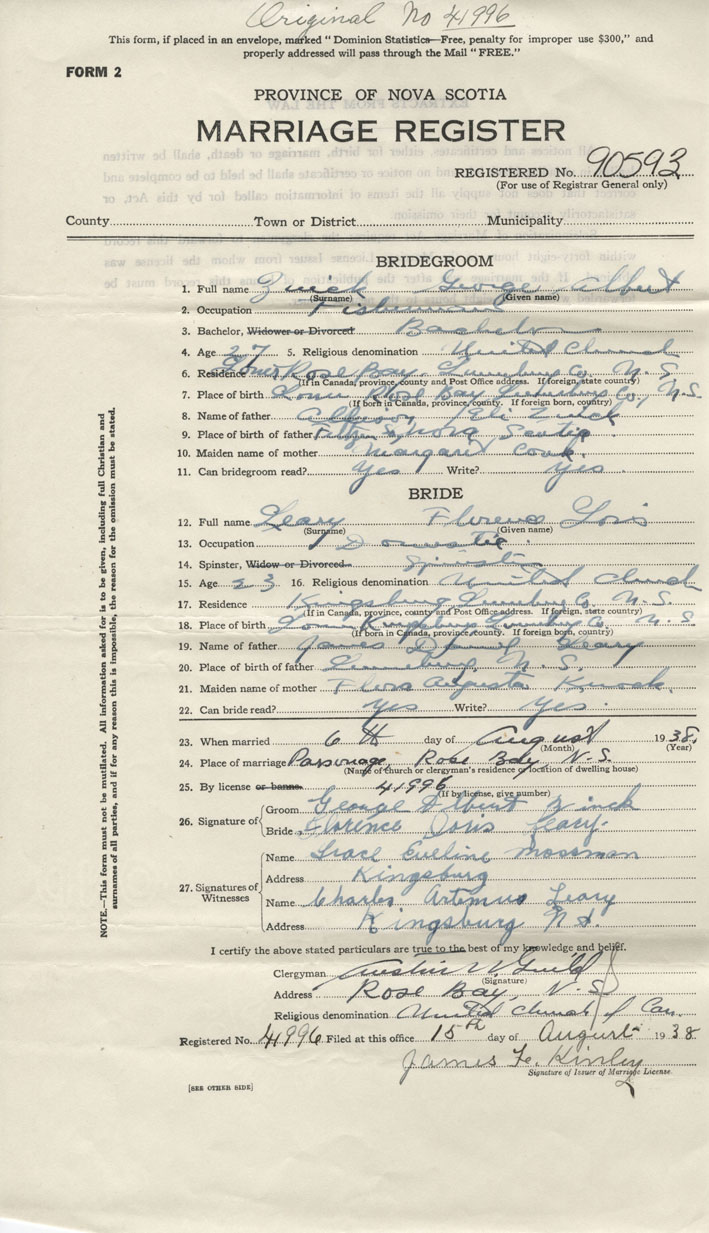 Original No 41996
This form, if placed in an envelope, marked "Dominion Statistics—Free, penalty for improper use $300," and
properly addressed will pass through the Mail "FREE."
FORM 2
PROVINCE OF NOVA SCOTIA
MARRIAGE REGISTER
REGISTERED No. 90593
(For use of Registrar General only)
County Town or District Municipality
BRIDEGROOM
1. Full name Zinck George Albert
(Surname) (Given name)
2. Occupation Fisherman
3. Bachelor, Widower or Divorced Bachelor
4. Age 27 5. Religious denomination United Church
6. Residence Rose Bay, Lunenburg Co. N. S.
(If in Canada, province, county and Post Office address. If foreign, state country)
7. Place of birth Rose Bay Lunenburg Co, N.S.
(If born in Canada, province, county. If foreign, country)
8. Name of father Eli Zinck
9. Place of birth of father Nova Scotia
10. Maiden name of mother Margaret Cook
11. Can bridegroom read? Yes Write? Yes
BRIDE
12. Full name Leary Florence Doris
(Surname) (Given name)
13. Occupation Domestic
14. Spinster, Widow or Divorced Spinster
15. Age 23 16. Religious denomination United Church
17. Residence Kingsburg Lunenburg Co. N. S.
(If in Canada, province, county and Post Office address. If foreign, state country)
18. Place of birth Kingsburg Lunenburg Co. N. S
(If born in Canada, province, county. If foreign, country)
19. Name of father James Leary
20. Place of birth of father Lunenburg, N. S.
21. Maiden name of mother Flora Augusta Knock
22. Can bride read? Yes Write? Yes.
23. When married 6th day of August 1938.
(Month) (Year)
24. Place of marriage Parsonage, Rose Bay, N. S.
(Name of church or clergyman's residence or location of dwelling house)
25. By license or banns 41996
(If by license, give number)
26. Signature of
Groom George Albert Zinck
Bride Florence Doris Leary.
27. Signatures of Witnesses
Name Grace Eveline Mossman
Address Kingsburg
Name Charles Artemus Leary
Address Kingsburg N.S.
I certify the above stated particulars are true to the best of my knowledge and belief.
Clergyman Austin
(Signature)
Address Rose Bay, N. S.
Religious denomination United Church of Can.
Registered No. 41996 Filed at this office 15th day of August 1938
James Kinley
Signature of Issuer of Marriage License.
[SEE OTHER SIDE]
NOTE.—This form must not be mutilated. All information asked for is to be given, including full Christian and
surnames of all parties, and if for any reason this is impossible, the reason for the omission must be stated.